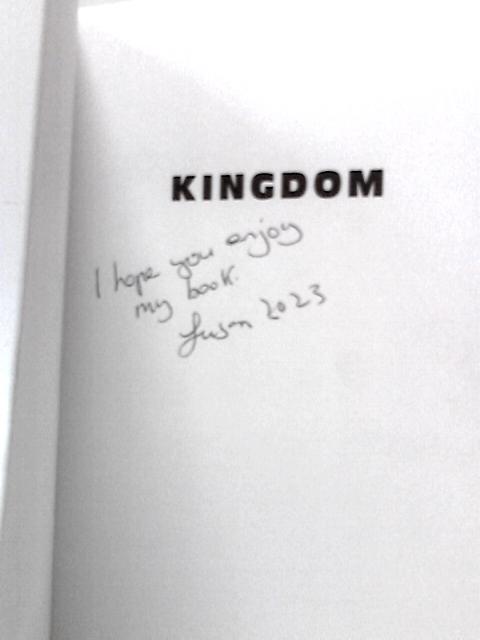 KINGDOM
I hope you enjoy
my book.
Susan 2023